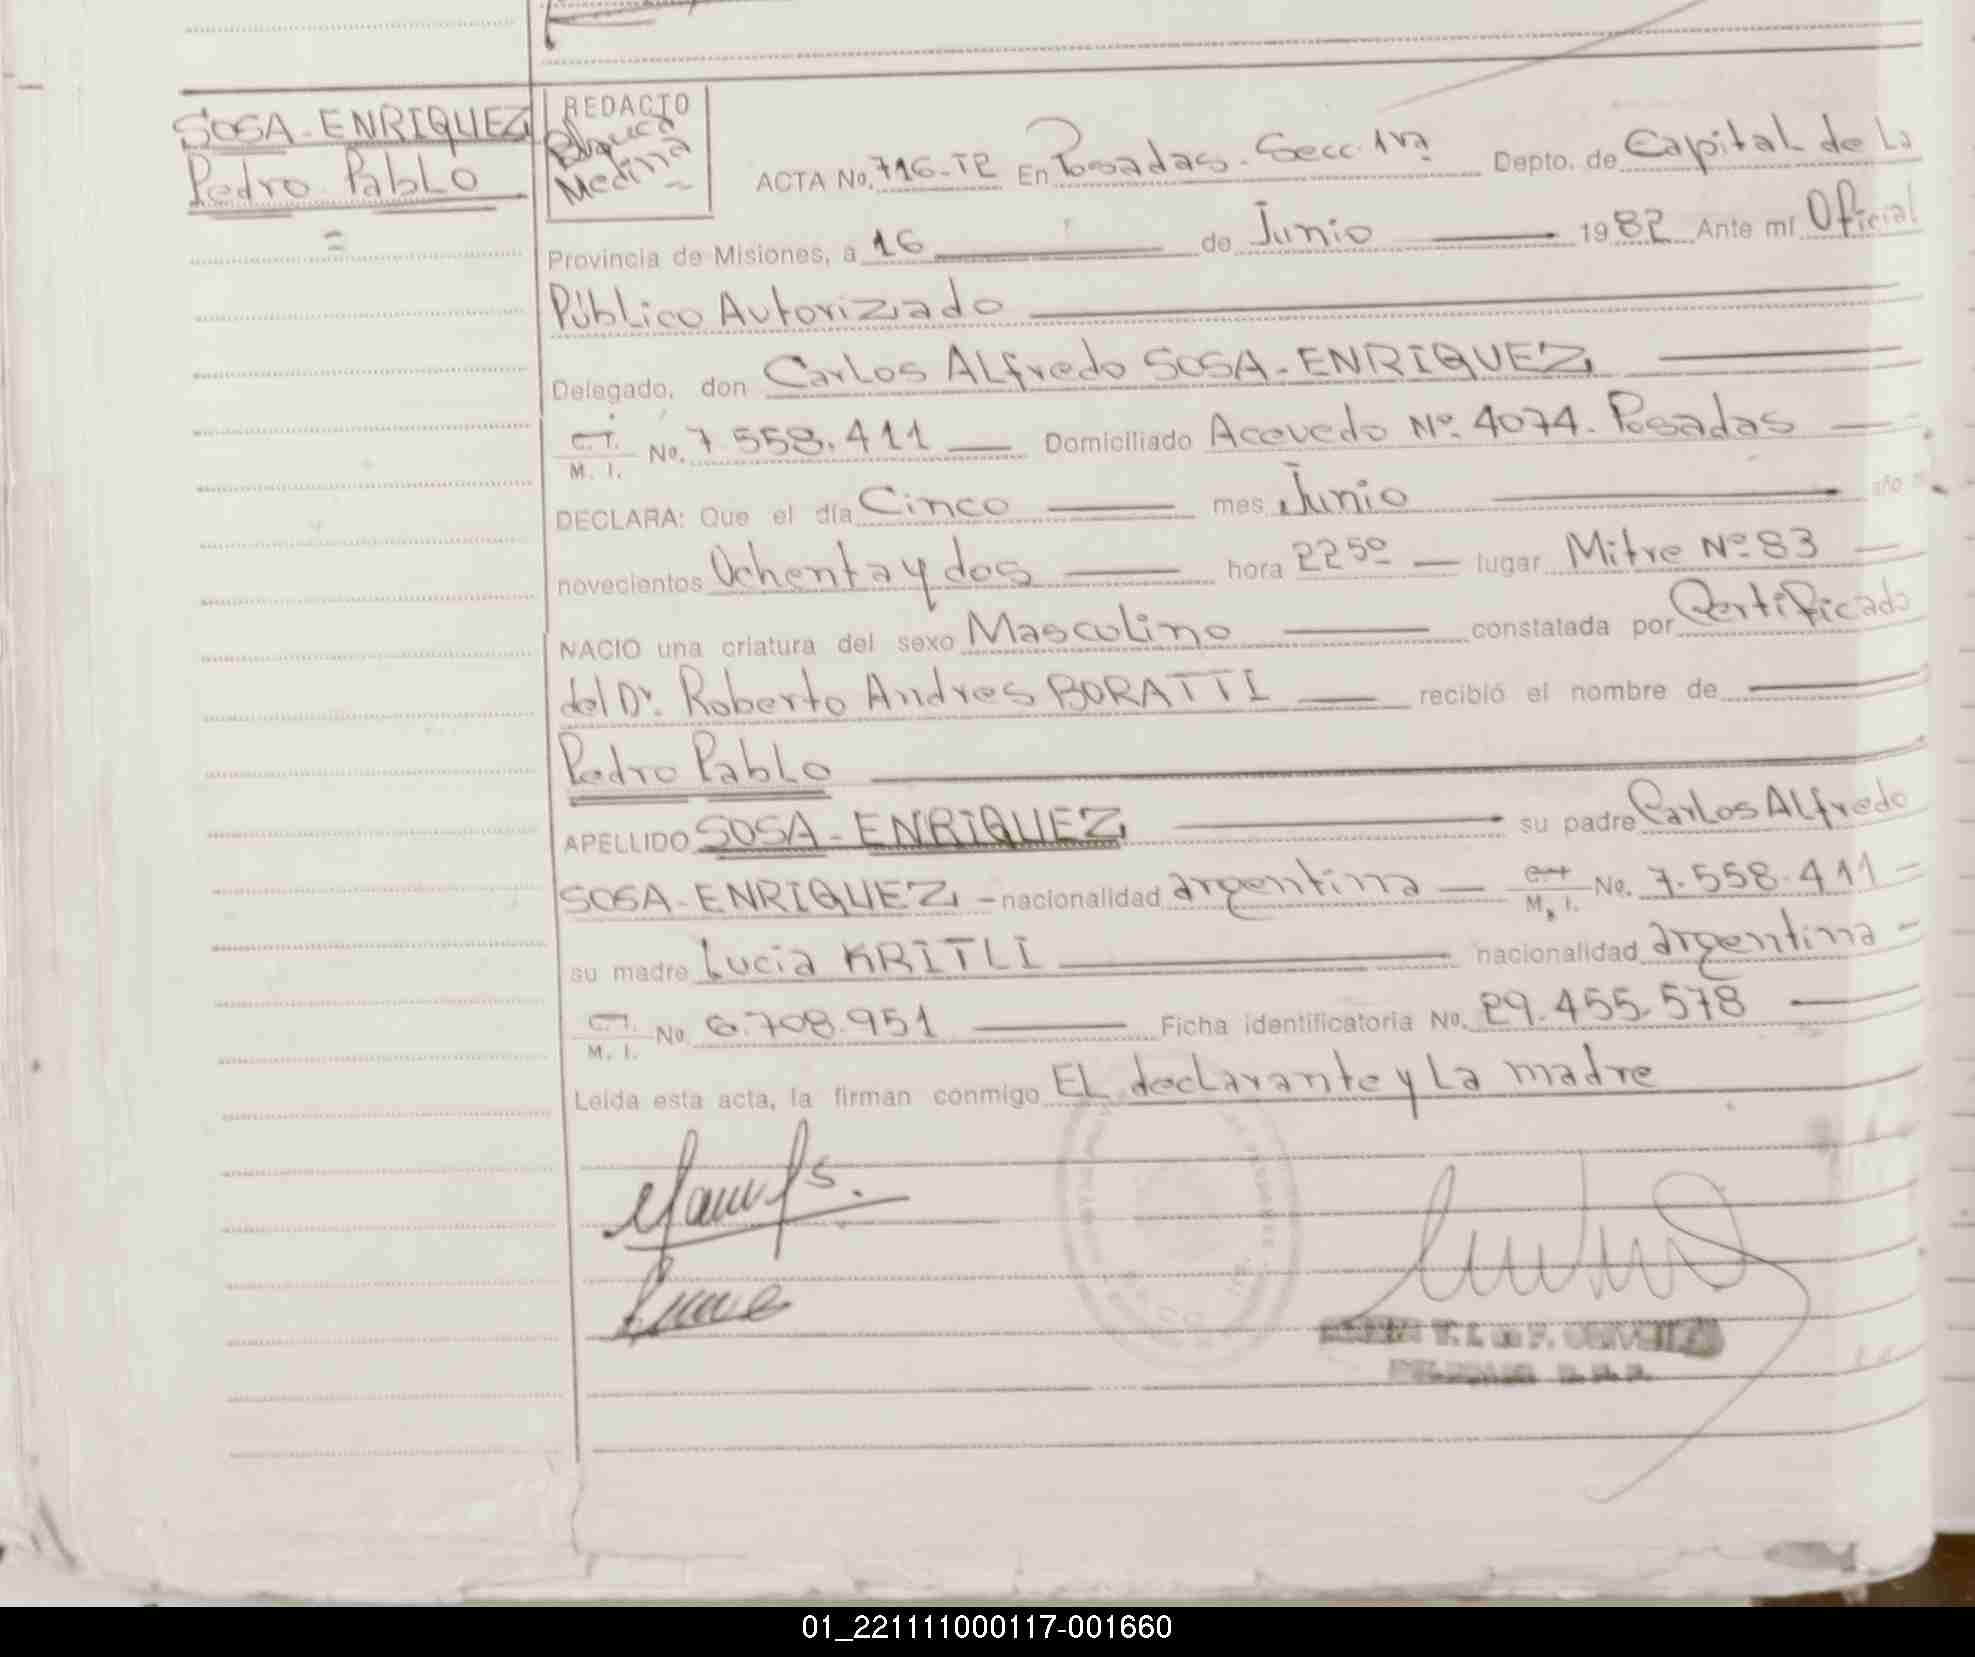 SOSA-ENRIQUEZ
Pedro Pablo
REDACTO
Blanca
Medina
ACTA No. 716-TR En Posadas-Secc. 1ra Depto. de Capital de La
Provincia de Misiones, a 16 de Junio 1982 Ante mí Oficial
Público Autorizado
Delegado, don Carlos Alfredo SOSA-ENRIQUEZ
C.I.
M. I. No. 7.558.411 Domiciliado Acevedo Nº. 4074. Posadas
DECLARA: Que el día Cinco mes Junio año
novecientos Ochenta y dos hora 2250 lugar Mitre Nº 83
NACIO una criatura del sexo Masculino constatada por Certificado
del Dr. Roberto Andres BORATTI recibió el nombre de
Pedro Pablo
APELLIDO SOSA-ENRIQUEZ su padre Carlos Alfredo
SOSA-ENRIQUEZ - nacionalidad argentina M. I. No. 7.558.411
su madre Lucia KRITLI nacionalidad argentina
C.I.
M. I. No. 6.708.951 Ficha identificatoria No. 29.455.578
Leída esta acta, la firman conmigo El declarante y La madre
01_221111000117-001660